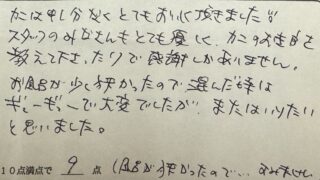 かには申し分なくとてもおいしく頂きました!!
スタッフのみなさんもとても優しく、かにのおき方を
教えて下さったりで感謝しかありません。
お風呂が少し狭かったので混んだ時は
ギューギューで大変でしたが、またまいりたい
と思いました。
10点満点で 9 点 (お風呂が狭かったので… すみません